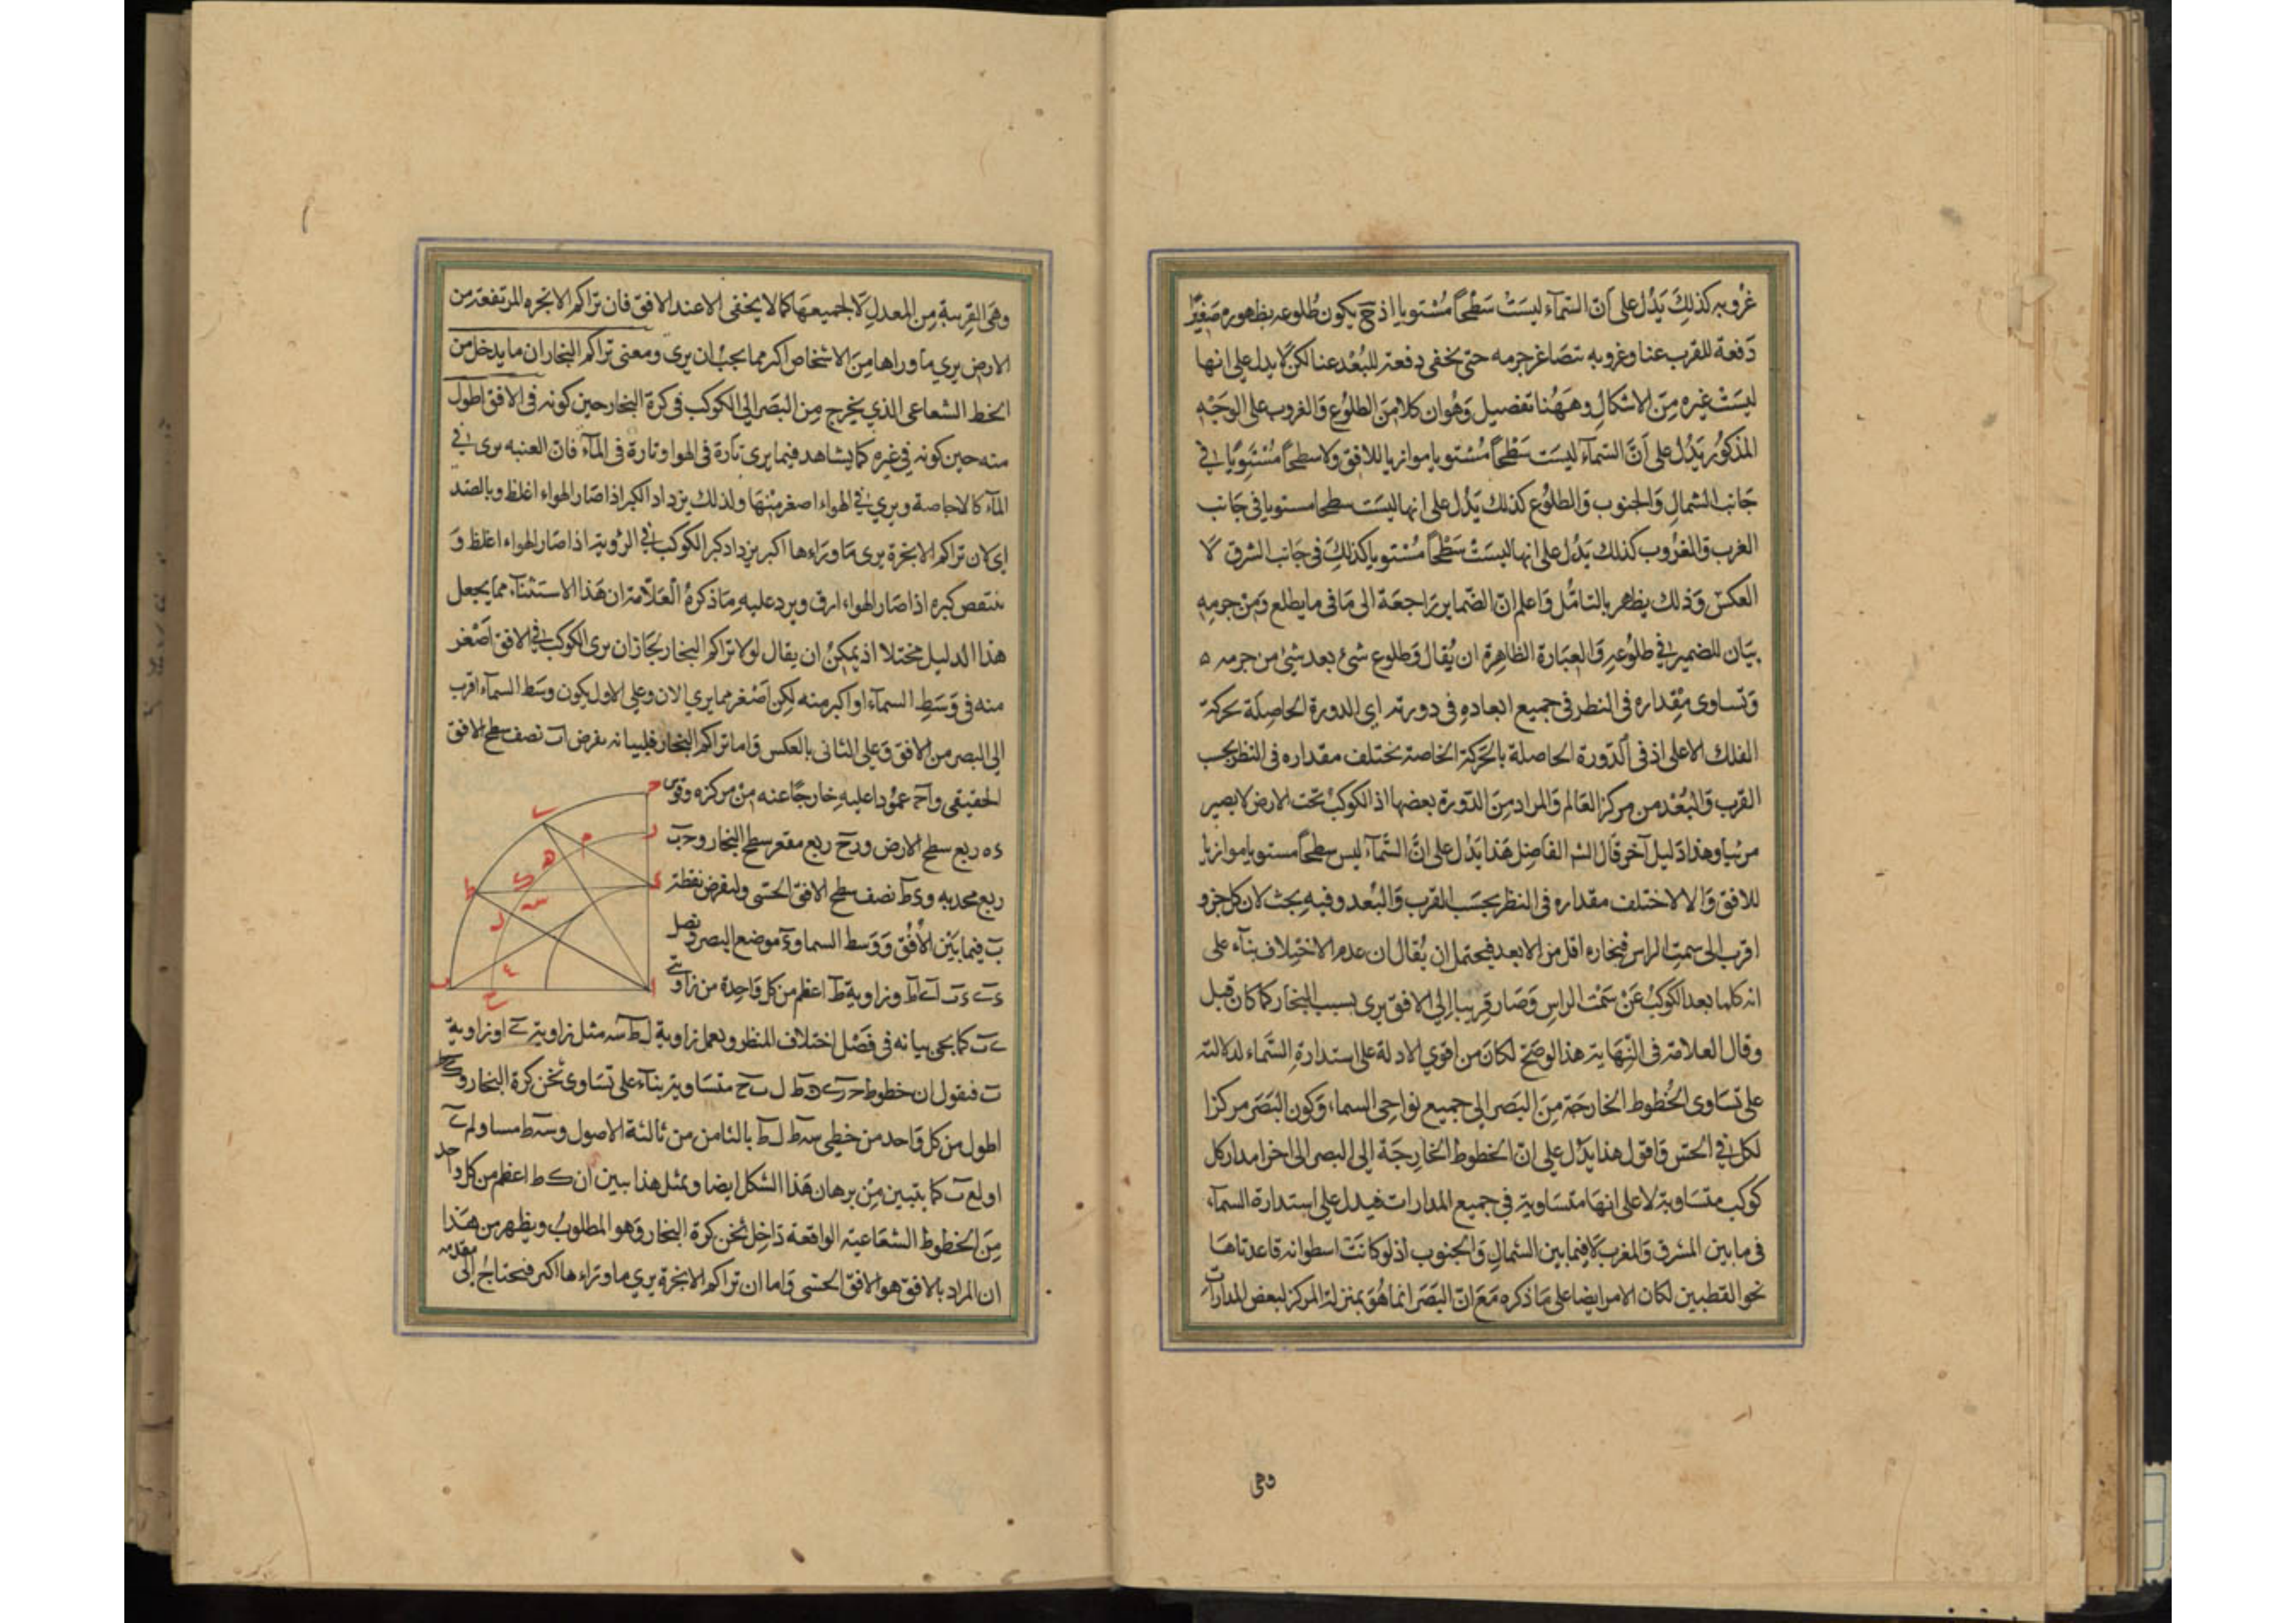 غروبه كذلك يدل على ان السمآء ليست سطحا مستويا اذ ح يكون طلوعه بظهوره صغيرا
دفعة للقرب عنا وغروبه بتصاغر جرمه حتى يخفى دفعة للبعد عنا لكن لا يدل على انها
ليست غيره من الاشكال وههنا تفصيل وهو ان كلا من الطلوع والغروب على الوجه
المذكور يدل على ان السمآء ليست سطحا مستويا موازيا للافق ولا سطحا مستويا في
جانب الشمال والجنوب والطلوع كذلك يدل على انها ليست سطحا مستويا في جانب
الغرب والغروب كذلك يدل على انها ليست سطحا مستويا كذلك في جانب الشرق لا
العكس وذلك يظهر بالتامل واعلم ان الضماير راجعة الى ما في ما يطلع ومن جرمه
بيان للضمير في طلوعه والعبارة الظاهرة ان يقال وطلوع شئ بعد شئ من جرمه ه
وتساوى مقداره في النظر في جميع ابعاده في دورته اى الدورة الحاصلة بحركة
الفلك الاعلى اذ في الدورة الحاصلة بالحركة الخاصة يختلف مقداره في النظر بحسب
القرب والبعد من مركز العالم والمراد من الدورة بعضها اذ الكوكب تحت الارض لا يصير
مرئيا وهذا دليل آخر قال الش الفاضل هذا يدل على ان السمآء ليس سطحا مستويا موازيا
للافق والا لاختلف مقداره في النظر بحسب القرب والبعد وفيه بحث لان كل جزو
اقرب الى سمت الراس فبخاره اقل من الابعد فيحتمل ان يقال ان عدم الاختلاف بنآء على
انه كلما بعد الكوكب عن سمت الراس وصار قريبا الى الافق يرى بسبب البخار كما كان قبل
وقال العلامة في النهاية هذا لو صح لكان من اقوى الادلة على استدارة السماء لدلالته
على تساوى الخطوط الخارجة من البصر الى جميع نواحى السماء وكون البصر مركزا
لكل في الحس واقول هذا يدل على ان الخطوط الخارجة الى البصر الى اخرا مدار كل
كوكب متساوية لا على انها متساوية في جميع المدارات فيدل على استدارة السمآء
في ما بين المشرق والمغرب لا فيما بين الشمال والجنوب اذ لو كانت اسطوانه قاعدتاها
نحو القطبين لكان الامر ايضا على ما ذكره مع ان البصر انما هو بمنزلة المركز لبعض المدارات
وهى
وهى القريبة من المعدل لا لجميعها كما لا يخفى الا عند الافق فان تراكم الابخره المرتفعة من
الارض يرى ما وراها من الاشخاص اكبر مما يجب ان يرى ومعنى تراكم البخار ان ما يدخل من
الخط الشعاعى الذي يخرج من البصر الى الكوكب في كرة البخار حين كونه في الافق اطول
منه حين كونه في غيره كما يشاهد فيما يرى تارة في الهوا وتارة في المآء فان العنبه يرى في
المآء كالاجاصة ويرى في الهواء اصغر منها ولذلك يزداد الكبر اذا صار الهواء اغلظ وبالضد
اى لان تراكم الابخرة يرى ما وراءها اكبر يزداد كبر الكوكب في الرؤية اذا صار الهواء اغلظ و
ينتقص كبره اذا صار الهواء ارق ويرد عليه ما ذكره العلامة ان هذا الاستثنآء مما يجعل
هذا الدليل مختلا اذ يمكن ان يقال لولا تراكم البخار لجاز ان يرى الكوكب في الافق اصغر
منه في وسط السمآء او اكبر منه لكن اصغر مما يرى الان وعلى الاول يكون وسط السمآء اقرب
الى البصر من الافق وعلى الثانى بالعكس واما تراكم البخار فلبيانه نفرض اب نصف سطح الافق
الحقيقى واح عمودا عليه خارجا عنه من مركزه وقوس
ء ه ربع سطح الارض ورح ربع مقعر سطح البخار وحب
ربع محدبه وءط نصف سطح الافق الحسى ولنفرض نقطة
ب فيما بين الافق ووسط السما وء موضع البصر ونصل
وزاوية ط اعظم من كل واحدة من زاويتى
كما يجئ بيانه في فصل اختلاف المنظر ونعمل زاوية ل ط سه مثل زاوية ى او زاوية
ب فنقول ان خطوط متساوية بنآء على تساوى ثخن كرة البخار وك ط
اطول من كل واحد من خطى سه ط ل ط بالثامن من ثالثة الاصول وسه ط مساو لم ى
او لع ب كما يتبين من برهان هذا الشكل ايضا وبمثل هذا يبين ان ك ط اعظم من كل واحد
من الخطوط الشعاعية الواقعة داخل ثخن كرة البخار وهو المطلوب ويظهر من هذا
ان المراد بالافق هو الافق الحسى واما ان تراكم الابخرة يرى ما وراءها اكبر فنحتاج الى مقدمه